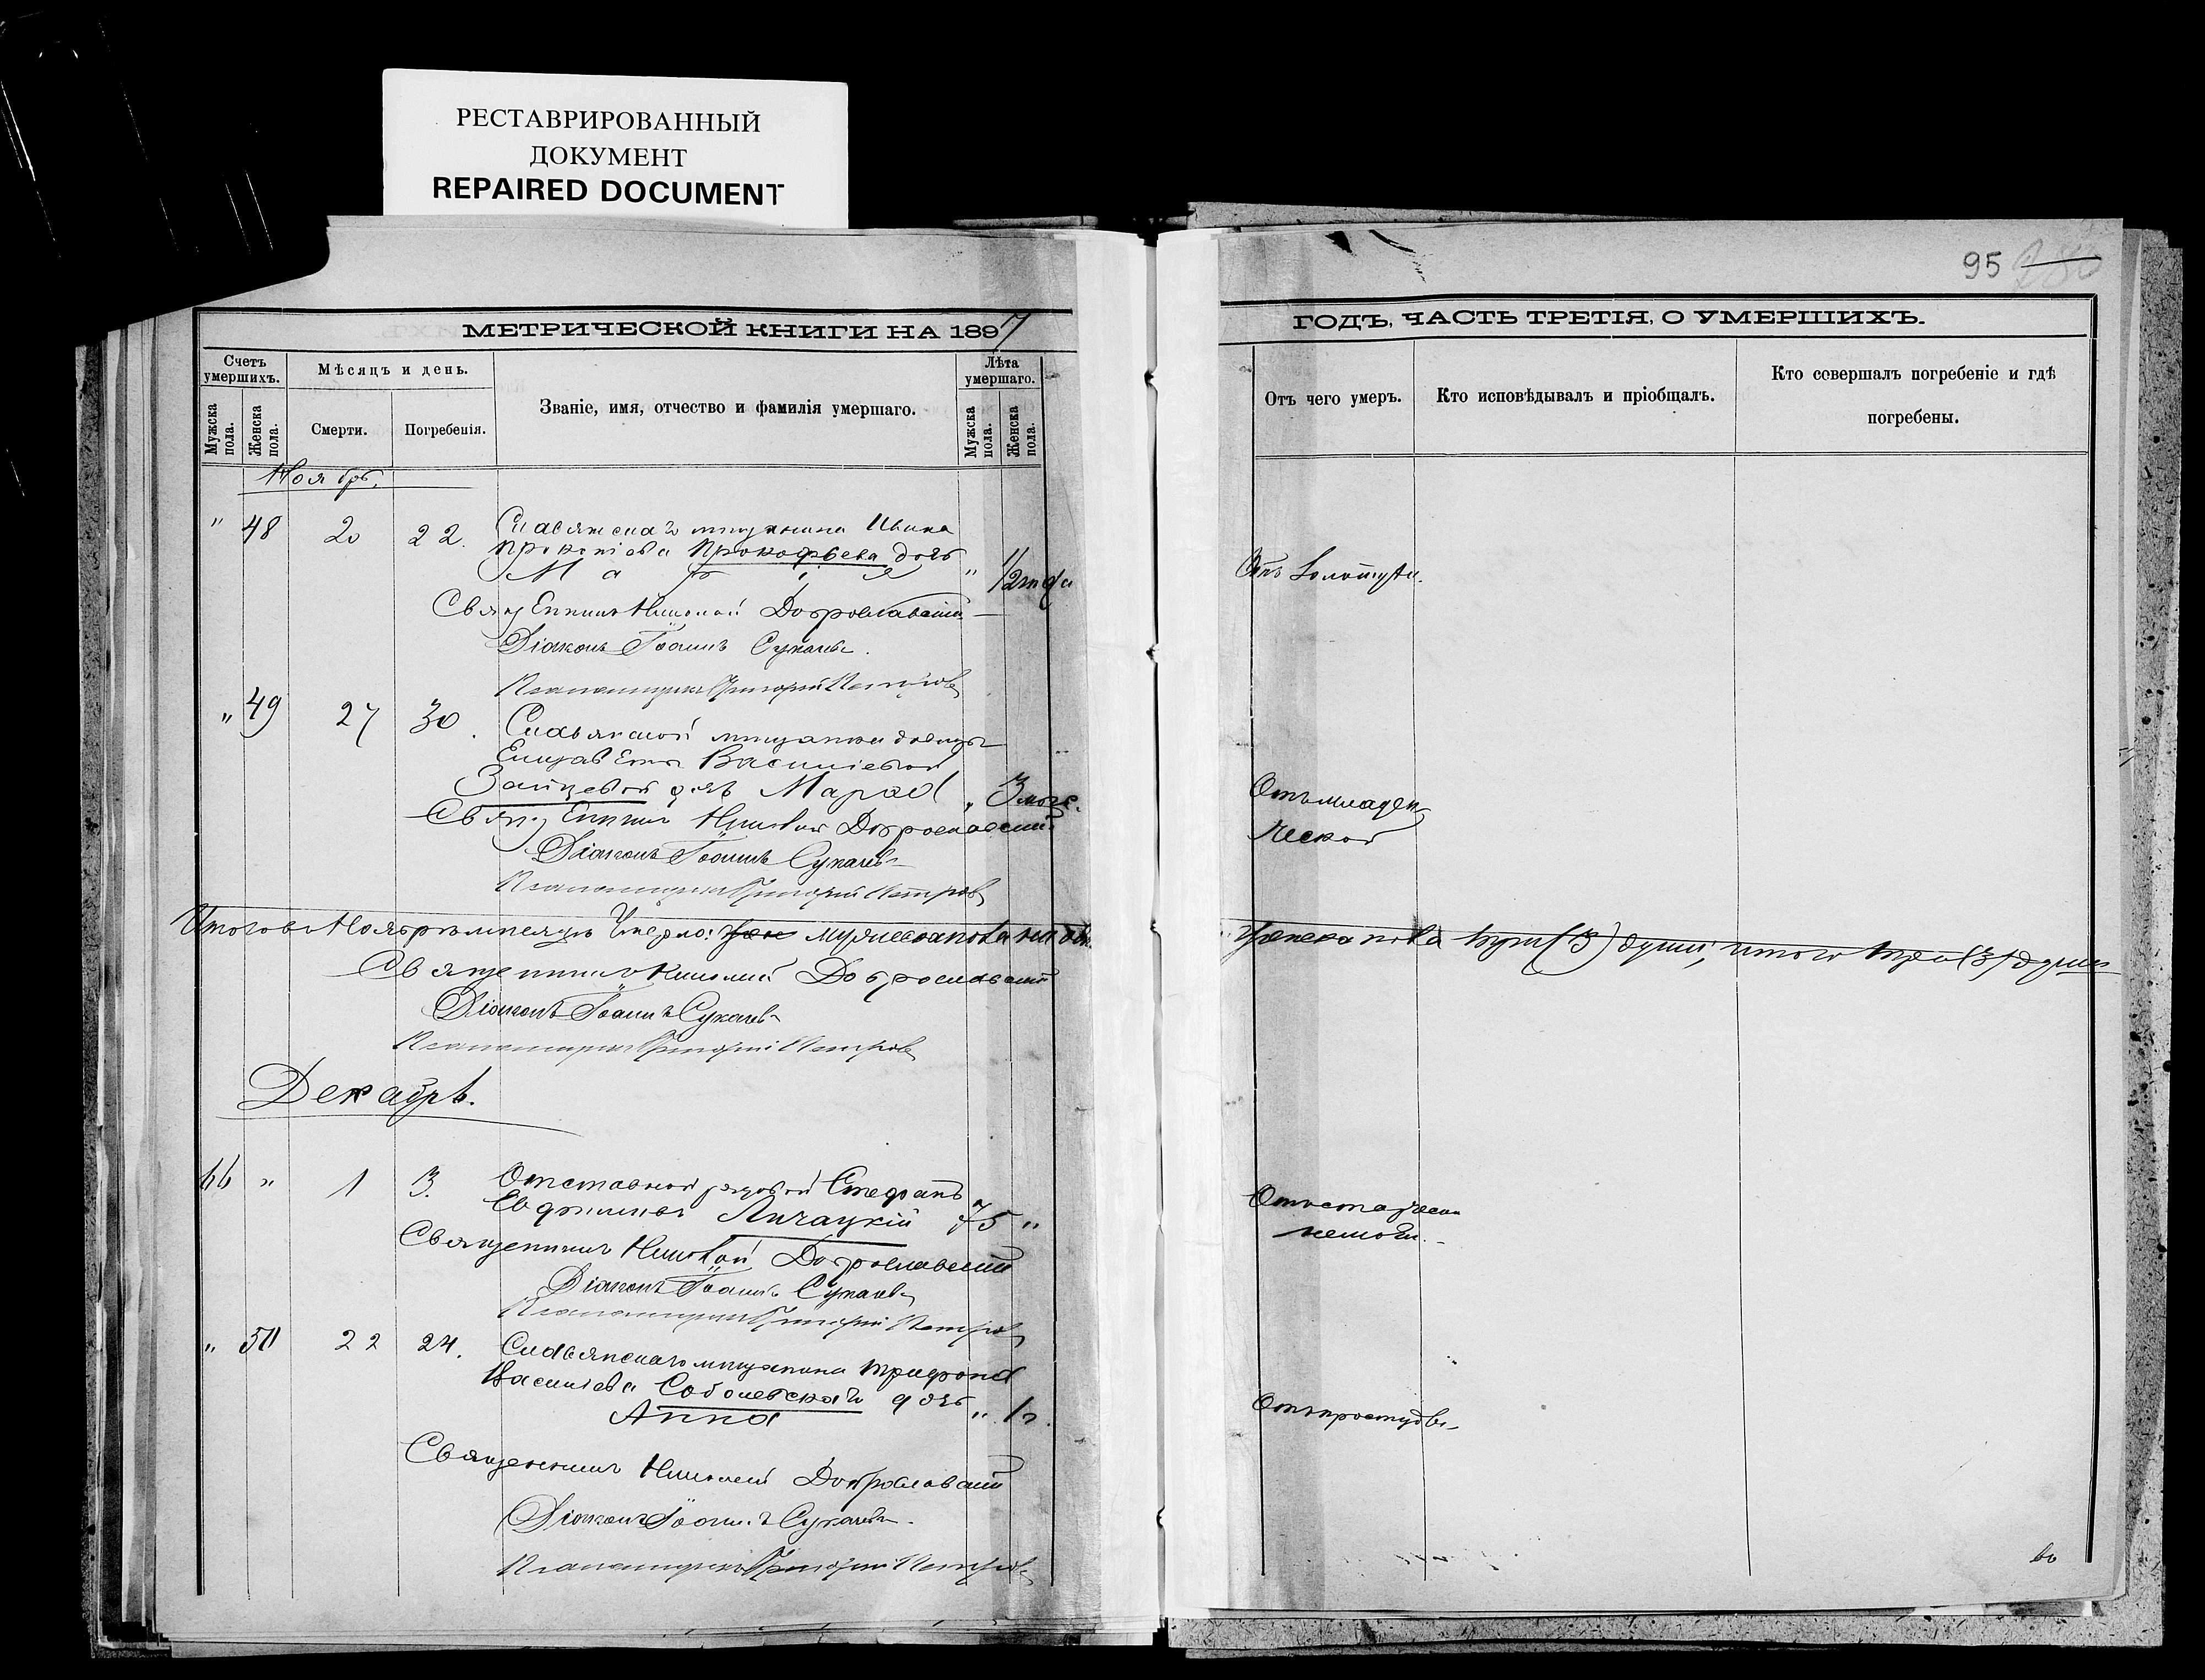 РЕСТАВРИРОВАННЫЙ
ДОКУМЕНТ
REPAIRED DOCUMENT
95
МЕТРИЧЕСКОЙ КНИГИ НА 1897
ГОДЪ, ЧАСТЬ ТРЕТІЯ, О УМЕРШИХЪ.
Счетъ умершихъ.
Мужска пола.
Женска пола.
Мѣсяцъ и день.
Смерти.
Погребенія.
Званіе, имя, отчество и фамилія умершаго.
Лѣта умершаго.
Мужска пола.
Женска пола.
Отъ чего умеръ.
Кто исповѣдывалъ и пріобщалъ.
Кто совершалъ погребеніе и гдѣ
погребены.
Ноябрь.
" 48 20 22. Славянскаго мѣщанина Ивана
Прокопіева Прокофьева дочь
Марія " 1/2 года
Отъ золотухи.
Священникъ Николай Доброславскій
Діаконъ Іоаннъ Сукачевъ.
Псаломщикъ Григорій Петровъ
" 49 27 30. Славянской мѣщанки дѣвицы
Елизаветы Василіевой
Зайцевой дочь Марѳа " 3 мѣс.
Отъ младен
ческой
Священникъ Николай Доброславскій
Діаконъ Іоаннъ Сукачевъ
Псаломщикъ Григорій Петровъ
Итого въ Ноябрѣ мѣсяцѣ умерло: мужеска пола
женска пола три (3) души, итого три (3) души
Священникъ Николай Доброславскій
Діаконъ Іоаннъ Сукачевъ
Псаломщикъ Григорій Петровъ
Декабрь.
66 " 1 3. Отставной рядовой Стефанъ
Евфиміевъ Личацкій 75 "
Отъ старческой
немощи.
Священникъ Николай Доброславскій
Діаконъ Іоаннъ Сукачевъ
Псаломщикъ Григорій Петровъ
" 50 22 24. Славянскаго мѣщанина Трифона
Василіева Соболевскаго дочь
Анна " 1 г.
Отъ простуды
Священникъ Николай Доброславскій
Діаконъ Іоаннъ Сукачевъ.
Псаломщикъ Григорій Петровъ